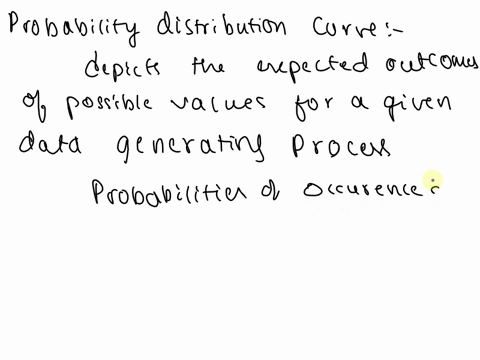 Probability distribution curve:-
depicts the expected outcomes
of possible values for a given
data generating Process
Probabilities of occurence: